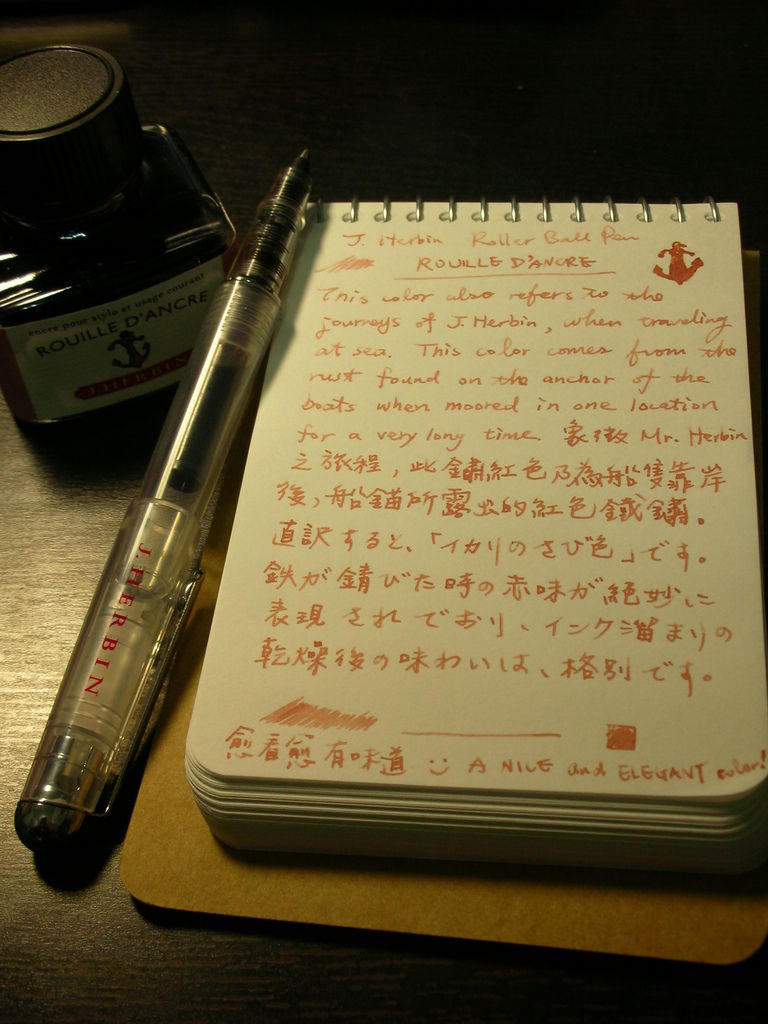 encre pour stylo et usage courant
ROUILLE D'ANCRE
J. HERBIN
J. HERBIN
J. Herbin Roller Ball Pen
ROUILLE D'ANCRE
This color also refers to the
journeys of J. Herbin, when traveling
at sea. This color comes from the
rust found on the anchor of the
boats when moored in one location
for a very long time. 象徵 Mr. Herbin
之旅程，此鏽紅色乃為船隻靠岸
後，船錨所露出的紅色鐵鏽。
直訳すると、「イカリのさび色」です。
鉄が錆びた時の赤味が絶妙に
表現されており、インク溜まりの
乾燥後の味わいは、格別です。
愈看愈有味道 :) A NICE and ELEGANT color!